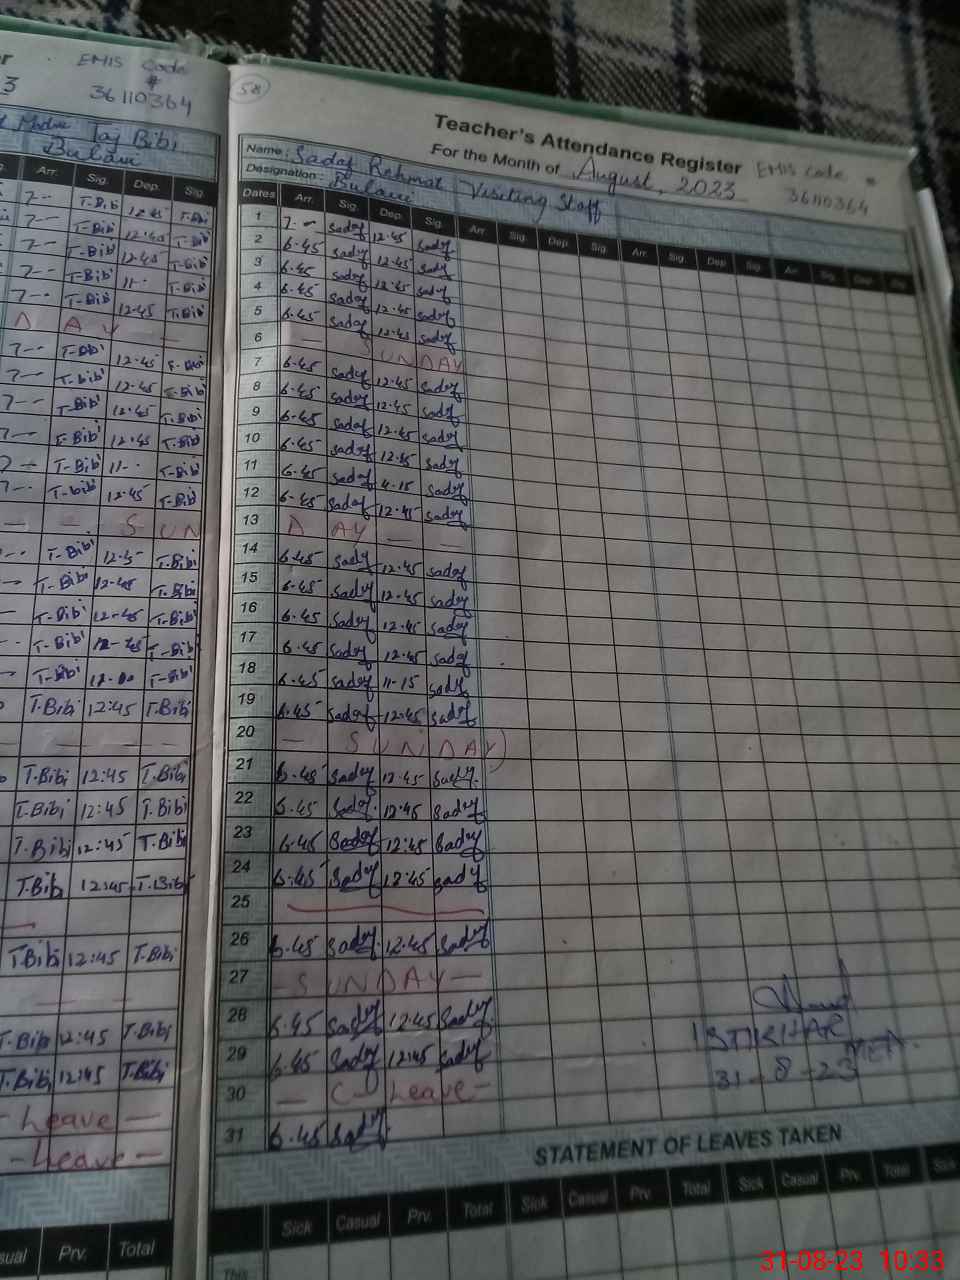 EMIS Code
#
36110364
3
Taj Bibi
Bulani
Arr. Sig. Dep. Sig.
7-- T-Bibi 12.45 T-Bibi
7-- T-Bibi 12.45 T-Bibi
7-- T-Bibi 12.45 T-Bibi
7-- T-Bibi 11-- T-Bibi
7-- T-Bibi 12.45 T-Bibi
D A Y —
7-- T-Bibi 12.45 T-Bibi
7-- T-Bibi 12.45 T-Bibi
7-- T-Bibi 12.45 T-Bibi
7-- T-Bibi 12.45 T-Bibi
7-- T-Bibi 11-- T-Bibi
7-- T-Bibi 12.45 T-Bibi
— — S U N
T-Bibi 12.45 T-Bibi
T-Bibi 12-45 T-Bibi
T-Bibi 12-45 T-Bibi
T-Bibi 12-45 T-Bibi
T-Bibi 12.00 T-Bibi
T.Bibi 12:45 T.Bibi
— — — —
T.Bibi 12:45 T.Bibi
T.Bibi 12:45 T.Bibi
T.Bibi 12:45 T.Bibi
T.Bibi 12:45 T.Bibi
T.Bibi 12:45 T.Bibi
T.Bibi 12:45 T.Bibi
T.Bibi 12:45 T.Bibi
- Leave —
- Leave —
Prv. Total
58
Teacher's Attendance Register
For the Month of August, 2023
EMIS code #
36110364
Name: Sadaf Rehmat Visiting Staff
Designation: Bulani
Dates Arr. Sig. Dep. Sig. Arr. Sig. Dep. Sig. Arr. Sig. Dep. Sig. Arr. Sig. Dep. Sig.
1 7-- sadaf 12.45 sadaf
2 6.45 sadaf 12.45 sadaf
3 6.45 sadaf 12.45 sadaf
4 6.45 sadaf 12.45 sadaf
5 6.45 sadaf 12.45 sadaf
6 — SUNDAY
7 6.45 sadaf 12.45 sadaf
8 6.45 sadaf 12.45 sadaf
9 6.45 sadaf 12.45 sadaf
10 6.45 sadaf 12.45 sadaf
11 6.45 sadaf sadaf
12 6.45 sadaf 12.45 sadaf
13 D AY — —
14 6.45 sadaf 12.45 sadaf
15 6.45 sadaf 12.45 sadaf
16 6.45 sadaf 12.45 sadaf
17 6.45 sadaf 12.45 sadaf
18 6.45 sadaf 11-15 sadaf
19 6.45 sadaf 12.45 sadaf
20 — SUNDAY
21 6.45 sadaf 12.45 sadaf
22 6.45 sadaf 12.45 sadaf
23 6.45 sadaf 12:45 sadaf
24 6.45 sadaf 12.45 sadaf
25
26 6.45 sadaf 12.45 sadaf
27 - SUNDAY —
28 6.45 sadaf 12.45 sadaf
29 6.45 sadaf 12:45 sadaf
30 — C- Leave -
31 6.45 sadaf
ISTIKHAR
MEA.
31-8-23
STATEMENT OF LEAVES TAKEN
Sick Casual Prv. Total Sick Casual Prv. Total Sick Casual Prv. Total Sick
This
31-08-23 10:33